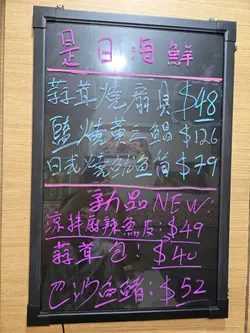 是日海鮮
蒜茸燒扇貝$48
鹽燒黃立鯧$126
日式燒鮑魚筒$79
新品NEW:
涼拌麻辣魚皮:$49
蒜茸包:$40
巴沙魚鰭:$52